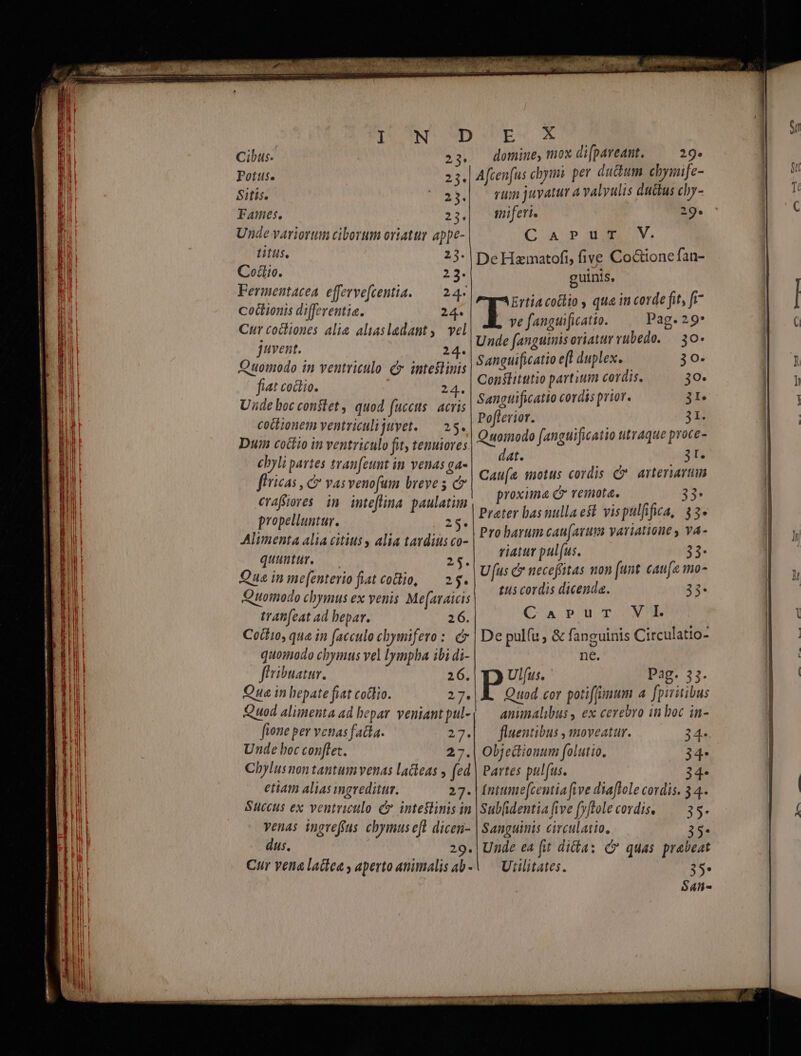 INDEX
Cibus. 23.
Potus. 23.
Sitis. 23.
Fames. 23.
Unde variorum ciborum oriatur appe-
titus. 23.
Coctio. 23.
Fermentacea effervescentia. 24.
Coctionis differentiæ. 24.
Cur coctiones aliæ alias lædant, vel
juvent. 24.
Quomodo in ventriculo & intestinis
fiat coctio. 24.
Unde hoc constet, quod succus acris
coctionem ventriculi juvet. 25.
Dum coctio in ventriculo fit, tenuiores
chyli partes transeunt in venas ga-
stricas, & vas venosum breve; &
crassiores in intestina paulatim
propelluntur. 25.
Alimenta alia citius, alia tardius co-
quuntur. 25.
Quæ in mesenterio fiat coctio, 25.
Quomodo chymus ex venis Mesaraicis
transeat ad hepar. 26.
Coctio, quæ in sacculo chymifero: &
quomodo chymus vel lympha ibi di-
stribuatur. 26.
Quæ in hepate fiat coctio. 27.
Quod alimenta ad hepar veniant pul-
sione per venas facta. 27.
Unde hoc constet. 27.
Chylus non tantum venas lacteas, sed
etiam alias ingreditur. 27.
Succus ex ventriculo & intestinis in
venas ingressus chymus est dicen-
dus. 29.
Cur venæ lacteæ, aperto animalis ab-
domine, mox dispareant. 29.
Ascensus chymi per ductum chymife-
rum juvatur a valvulis ductus chy-
miferi. 29.
CAPUT V.
De Hæmatosi, sive Coctione san-
guinis.
TErtia coctio, quæ in corde fit, si-
ve sanguificatio. Pag. 29.
Unde sanguinis oriatur rubedo. 30.
Sanguificatio est duplex. 30.
Constitutio partium cordis. 30.
Sanguificatio cordis prior. 31.
Posterior. 31.
Quomodo sanguificatio utraque proce-
dat. 31.
Causæ motus cordis & arteriarum
proxima & remota. 33.
Præter has nulla est vis pulsifica, 33.
Pro harum causarum variatione, va-
riatur pulsus. 33.
Usus & necessitas non sunt causæ mo-
tus cordis dicendæ. 33.
CAPUT VI.
De pulsu, & sanguinis Circulatio-
ne.
PUlsus. Pag. 33.
Quod cor potissimum a spiritibus
animalibus, ex cerebro in hoc in-
fluentibus, moveatur. 34.
Objectionum solutio, 34.
Partes pulsus. 34.
Intumescentia sive diastole cordis. 34.
Subsidentia sive systole cordis. 35.
Sanguinis circulatio. 35.
Unde ea sit dicta: & quas præbeat
Utilitates. 35.
San-